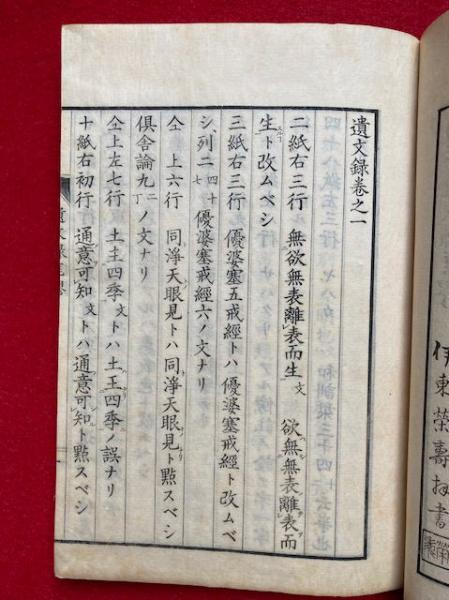 伊東榮壽拜書
遺文録卷之一
二紙右三行 無欲無表離表而生文 欲無無表離表而
生ト改ムベシ
三紙右三行 優婆塞五戒經トハ優婆塞戒經ト改ムベ
シ、列二七 四十 優婆塞戒經六ノ文ナリ
仝 上六行 同淨天眼見トハ同淨天眼見ト點スベシ
俱舍論九二丁ノ文ナリ
仝上左七行 土土四季文トハ土王四季ノ誤ナリ
十紙右初行 通意可知文トハ通意可知ト點スベシ